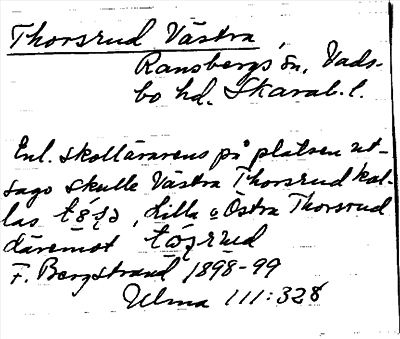 Thorsrud Västra,
Ransbergs sn, Vads-
bo hd. Skarab. l.
Enl. skollärarens på platsen ut-
sago skulle Västra Thorsrud kal-
las, Lilla o Östra Thorsrud
däremot
F. Bergstrand 1898-99
Ulma 111:328